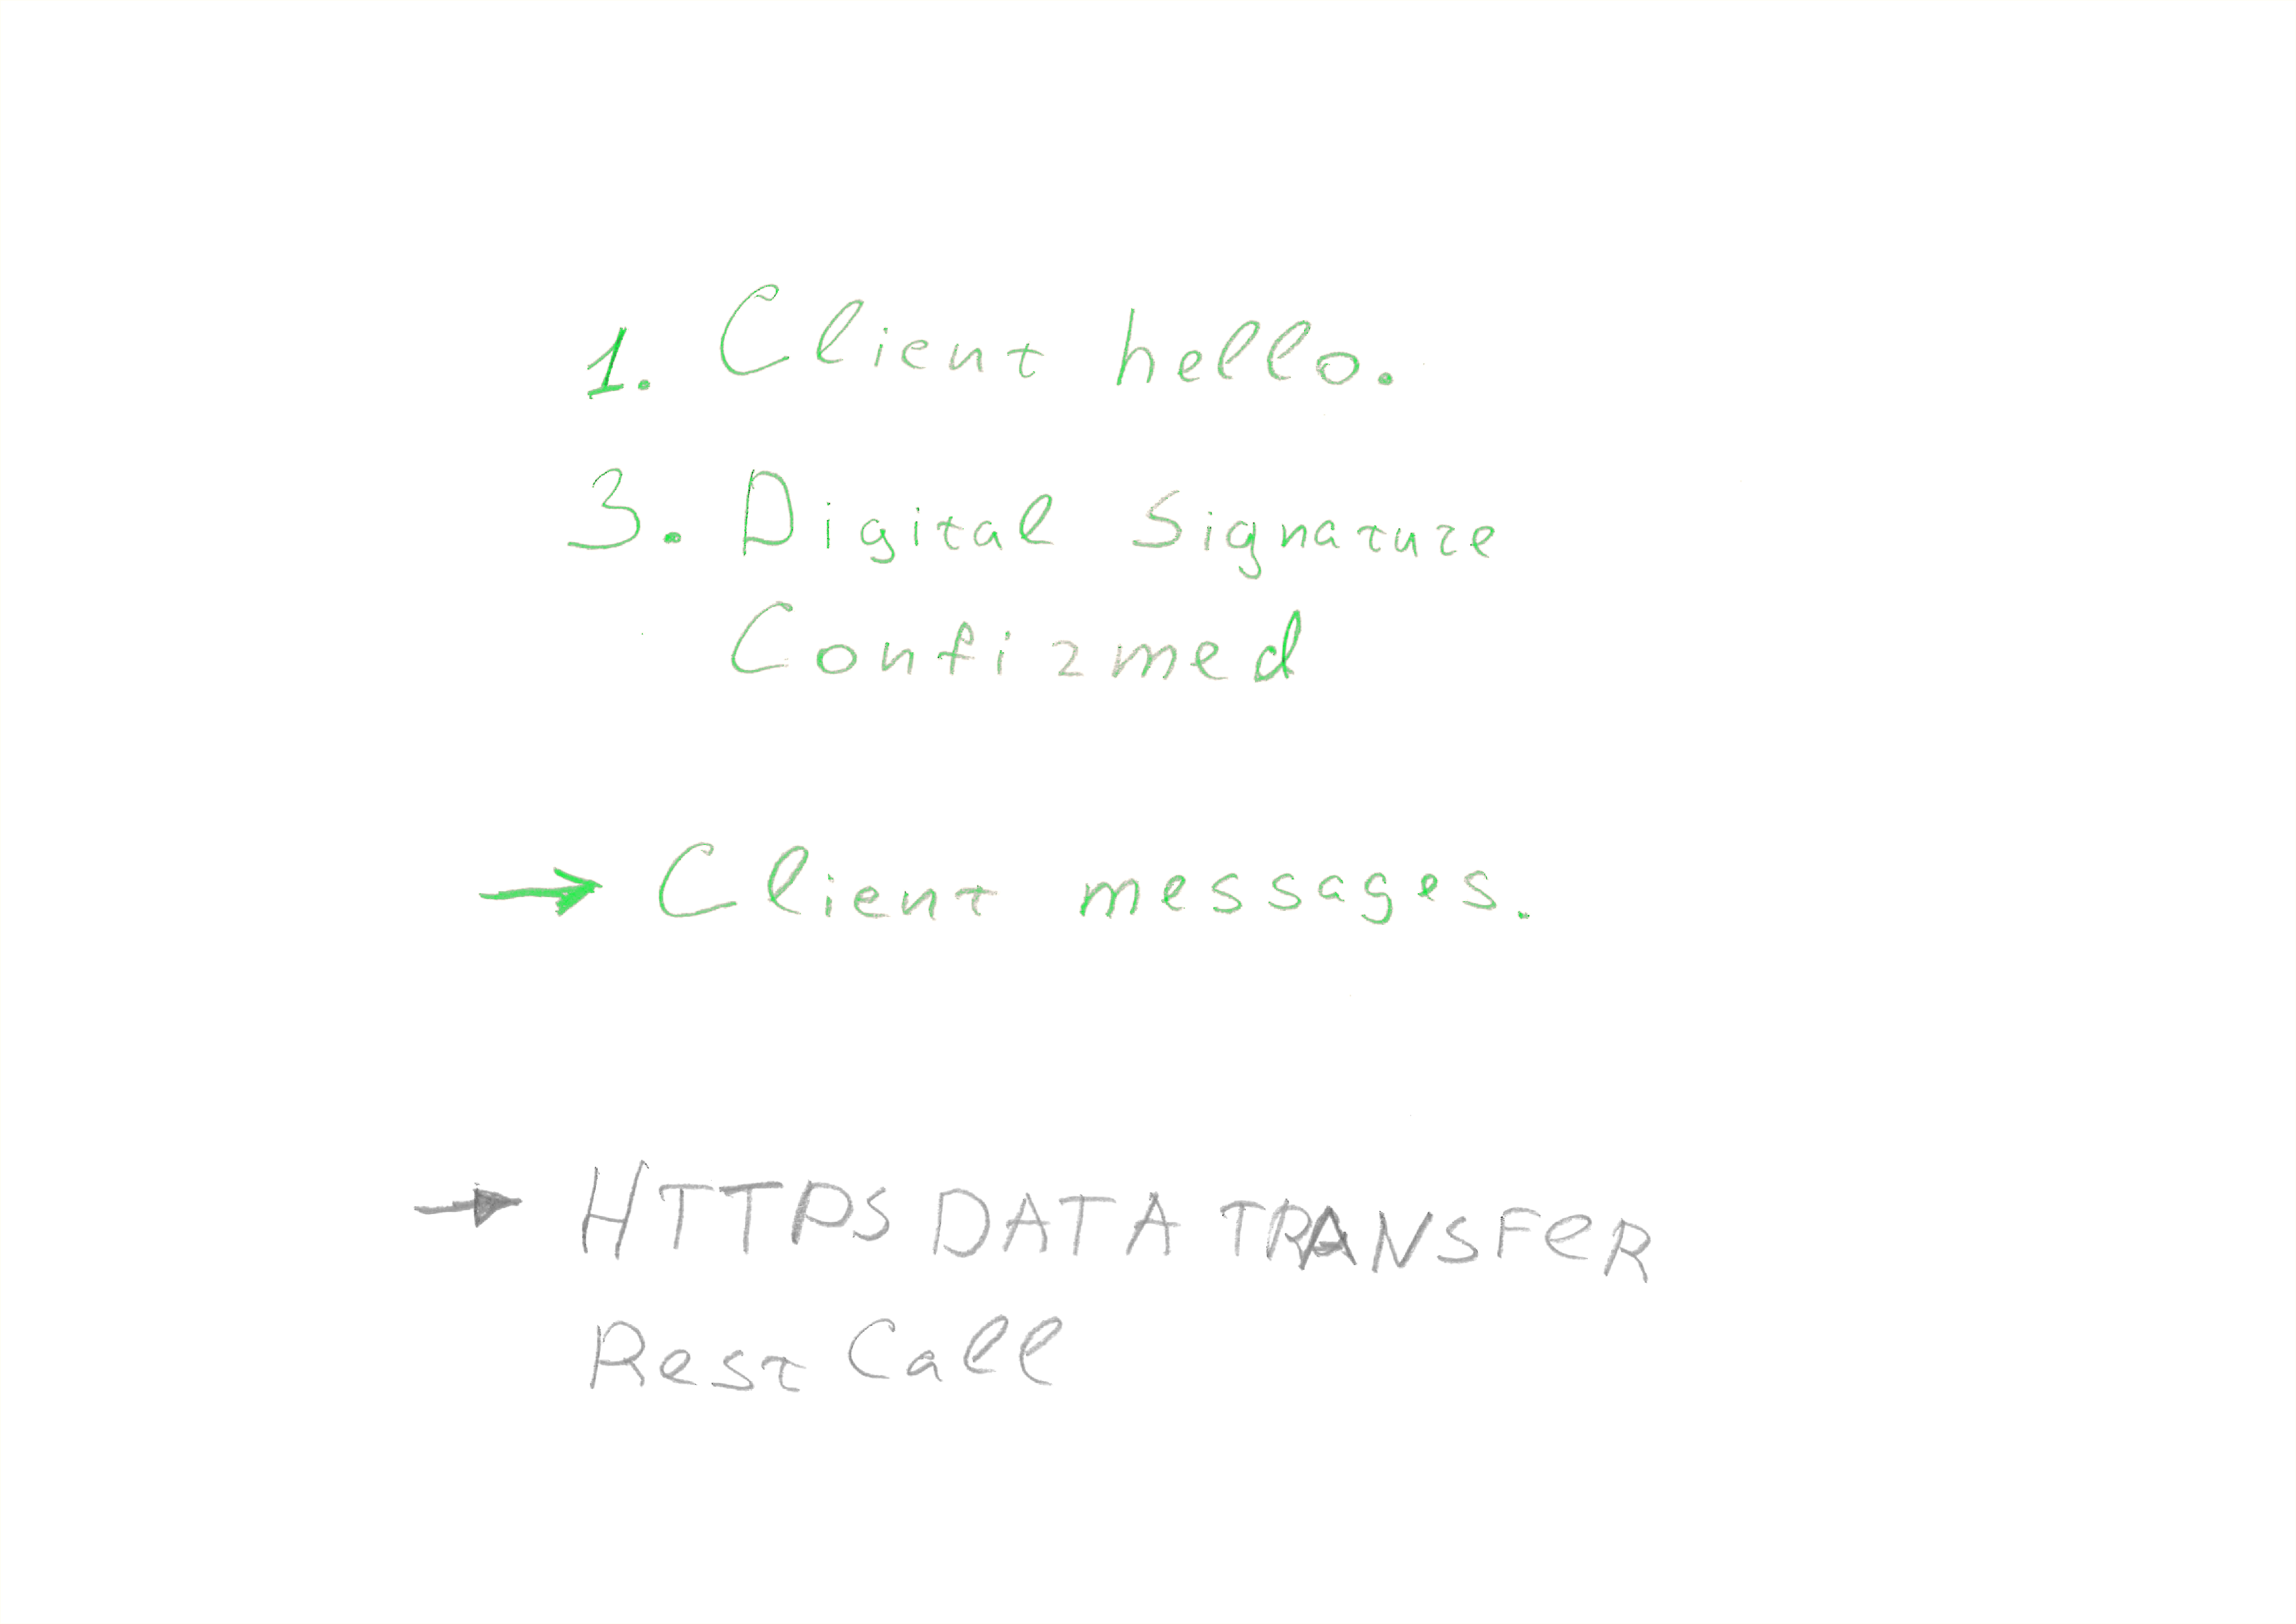 1. Client hello.
3. Digital Signature
Confirmed
→ Client messages.
→ HTTPS DATA TRANSFER
Rest Call